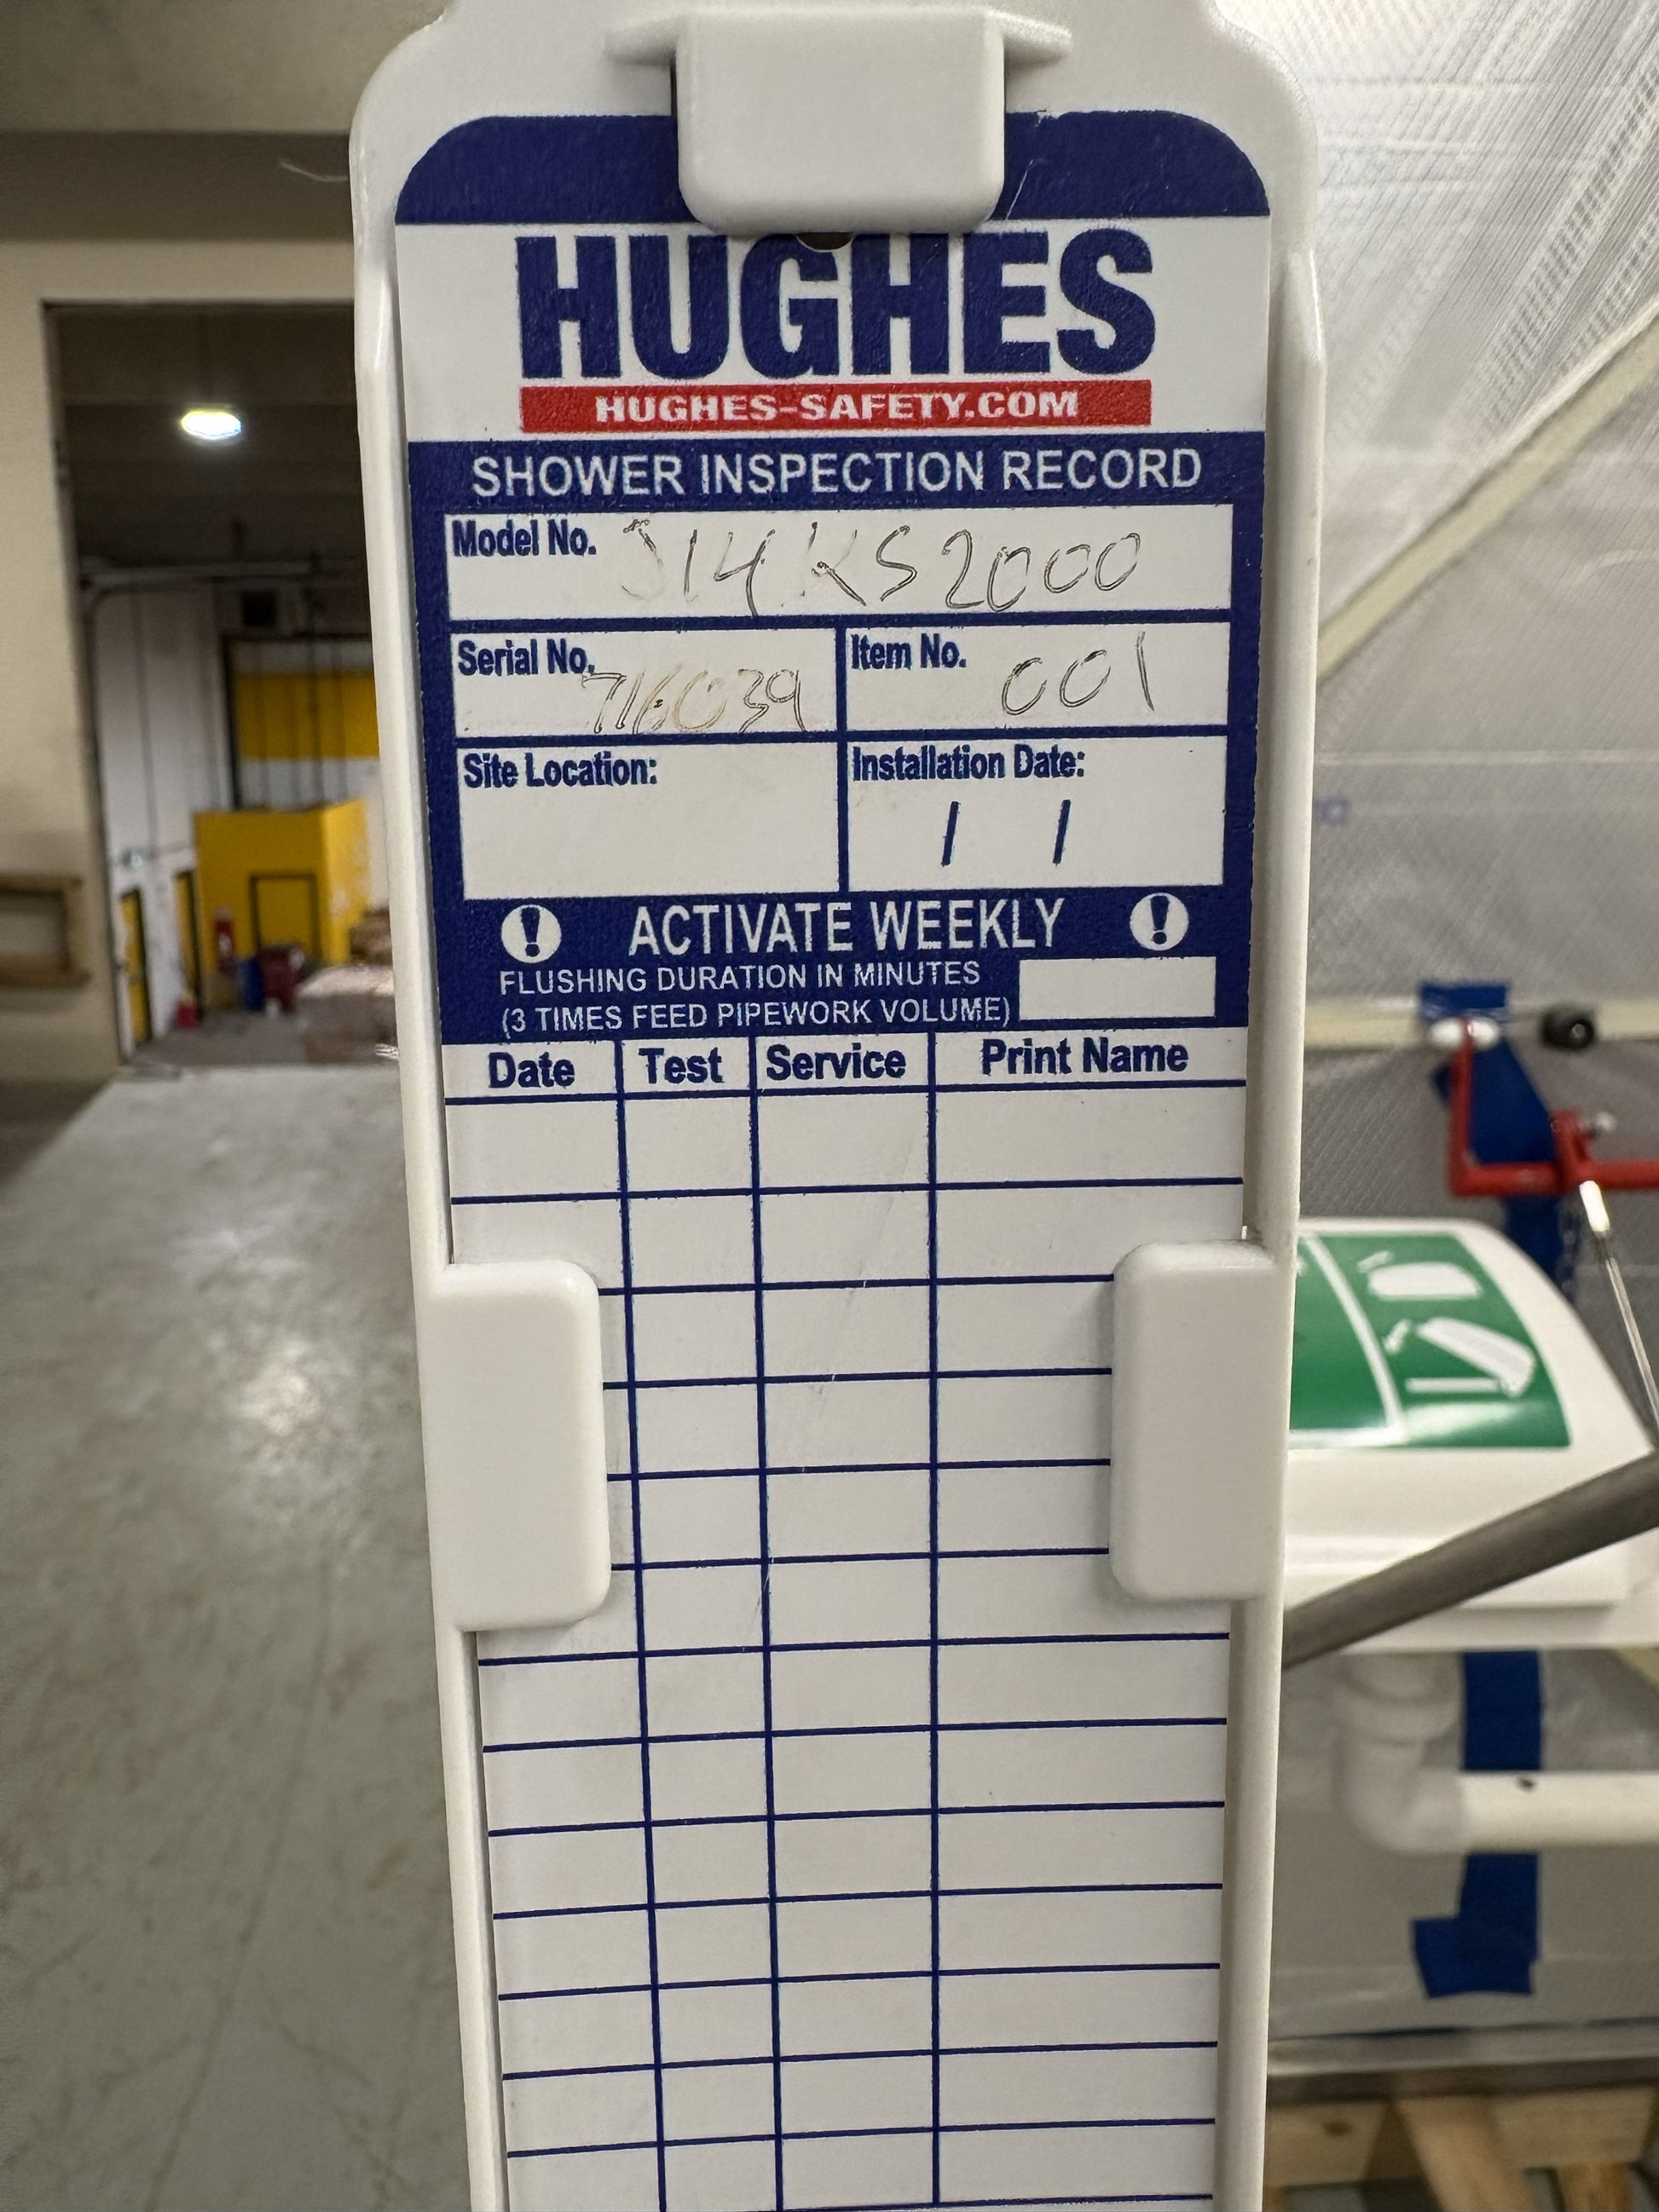 HUGHES
HUGHES-SAFETY.COM
SHOWER INSPECTION RECORD
Model No. J14KS2000
Serial No. 716039 Item No. 001
Site Location: Installation Date:
/ /
! ACTIVATE WEEKLY !
FLUSHING DURATION IN MINUTES
(3 TIMES FEED PIPEWORK VOLUME)
Date Test Service Print Name